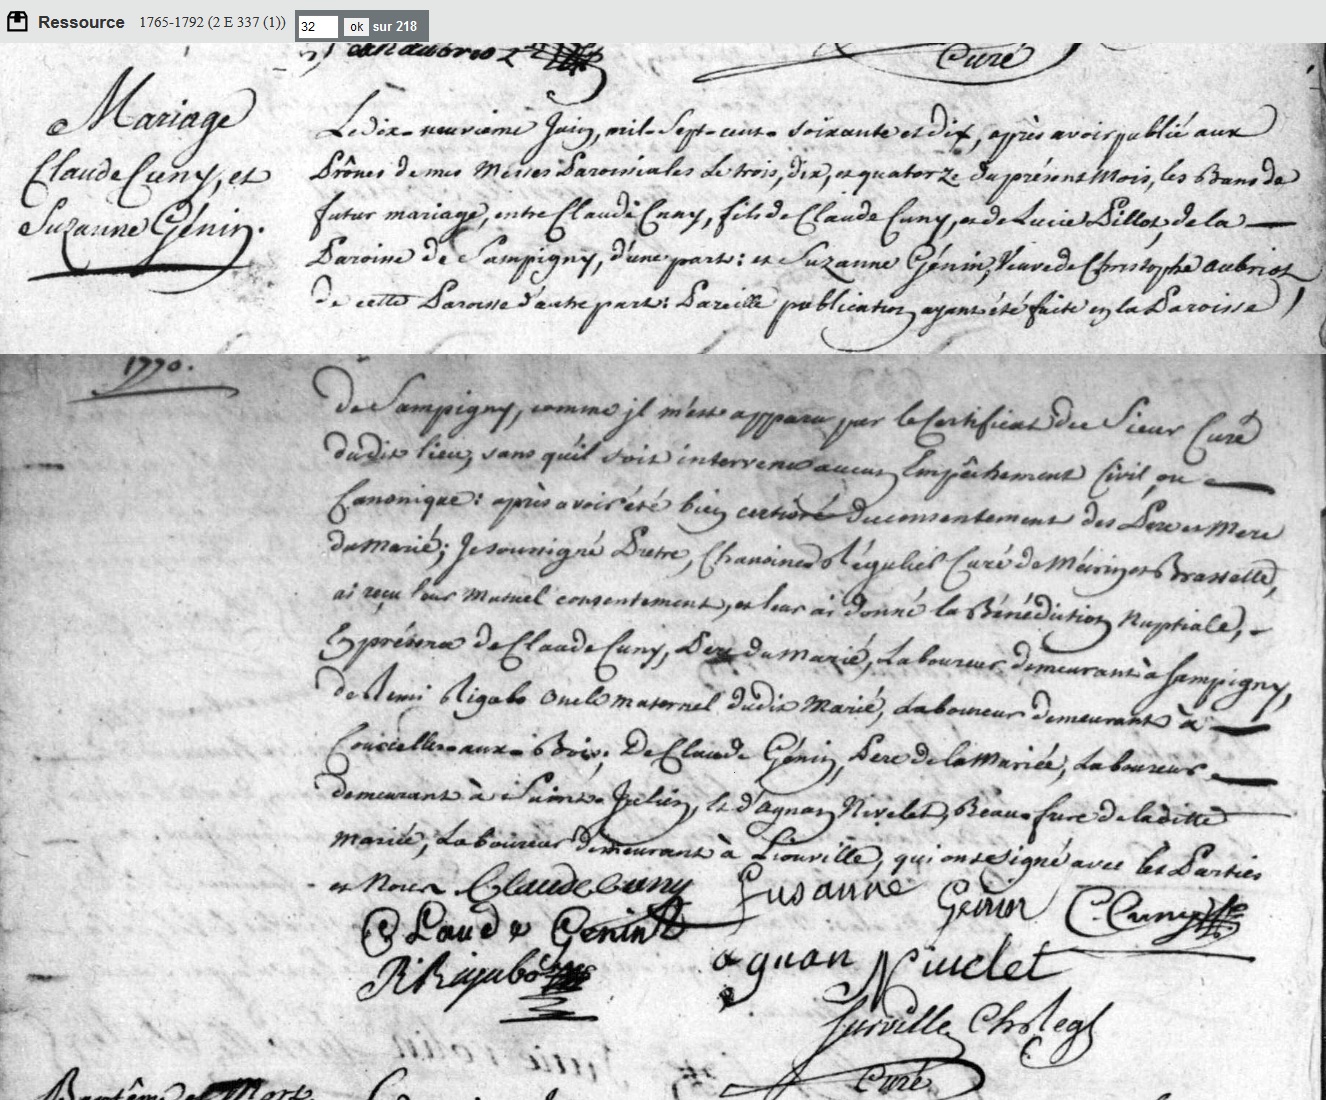 Ressource 1765-1792 (2 E 337 (1)) 32 ok sur 218
Curé
Mariage
Claude Cuny, et
Suzanne Génin.
Le dix-neuvième Juin, mil-Sept-cent-soixante et dix, après avoir publié aux
Prônes de mes Messes Paroissiales le trois, dix, et quatorze du présent Mois, les Bans de
futur mariage, entre Claude Cuny, fils de Claude Cuny, et de Lucie Pillot, de la
Paroisse de Sampigny, d'une part : et Suzanne Génin, Veuve de Christophe aubriot
de cette Paroisse d'autre part : Pareille publication ayant été faite en la Paroisse
1770.
de Sampigny, comme jl m'est apparu par le Certificat du Sieur Curé
dudit lieu, sans qu'il soit intervenu aucun Empêchement Civil, ou
Canonique : après avoir été bien certioré du consentement des Pere et Mere
du Marié ; Je soussigné Pretre, Chanoine Régulier Curé de Mécrin et Brasseitte,
ai reçu leur Mutuel consentement, et leur ai donné la Bénédiction Nuptiale,
En présence de Claude Cuny, Pere du Marié, Laboureur demeurant à Sampigny,
de Remi Rigabo Oncle maternel dudit Marié, Laboureur demeurant à
Courcelles-aux-Bois ; De Claude Génin, Pere de la Mariée, Laboureur
demeurant à Saint-Julien, et d'agnan Nivelet, Beau-frere de laditte
Mariée, Laboureur demeurant à Liouville, qui ont signé avec les Parties
et Nous Claude Cuny Susanne Genin C. Cuny
Claude Genin
R Rigabo agnan Nivelet
Surville Ch. Reg.
Curé
Baptême et Mort